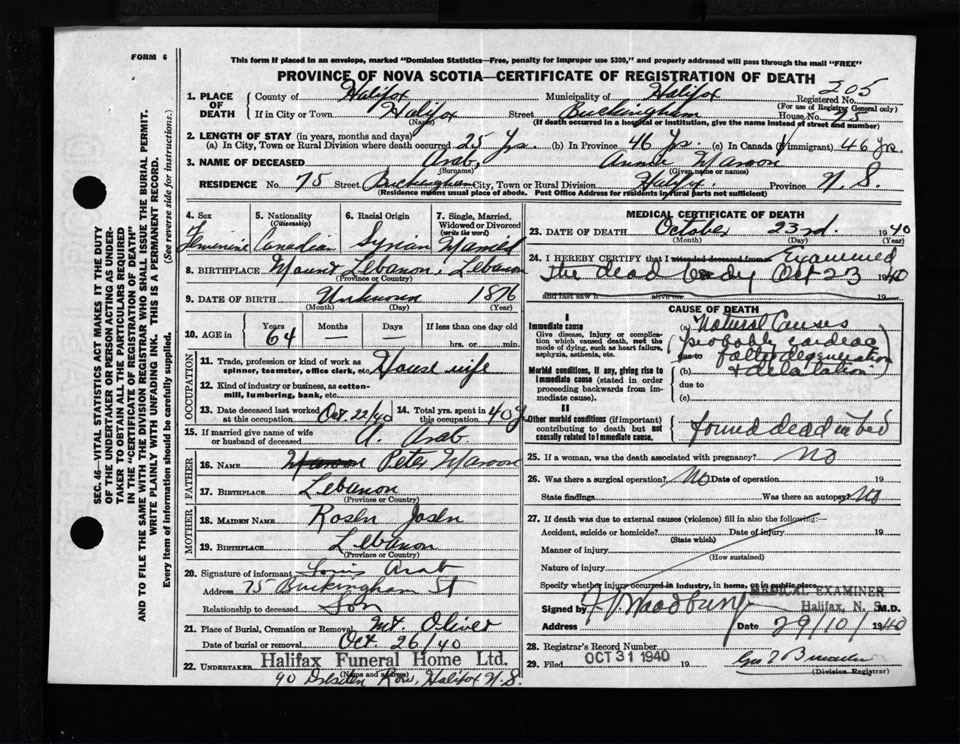 FORM 6
This form if placed in an envelope, marked "Dominion Statistics—Free, penalty for improper use $300," and properly addressed will pass through the mail "FREE"
PROVINCE OF NOVA SCOTIA—CERTIFICATE OF REGISTRATION OF DEATH
205
1. PLACE OF DEATH County of Halifax Municipality of Halifax Registered No.
(For use of Registrar General only)
If in City or Town Halifax Street Buckingham House No. 75
(Name) (If death occurred in a hospital or institution, give the name instead of street and number)
2. LENGTH OF STAY (in years, months and days)
(a) In City, Town or Rural Division where death occurred 25 Yrs. (b) In Province 46 Yrs. (c) In Canada (if immigrant) 46 Yrs.
3. NAME OF DECEASED Arab, Annie Maroon
(Surname) (Given name or names)
RESIDENCE No. 75 Street Buckingham City, Town or Rural Division Hlfx. Province N.S.
(Residence means usual place of abode. Post Office Address for residents in rural parts not sufficient)
4. Sex Feminine
5. Nationality (Citizenship) Canadian
6. Racial Origin Syrian
7. Single, Married, Widowed or Divorced (write the word) Married
8. BIRTHPLACE Mount Lebanon, Lebanon
(Province or Country)
9. DATE OF BIRTH Unknown 1876
(Month) (Day) (Year)
10. AGE in Years 64 Months — Days — If less than one day old
hrs. or min.
OCCUPATION
11. Trade, profession or kind of work as spinner, teamster, office clerk, etc. House wife
12. Kind of industry or business, as cotton-mill, lumbering, bank, etc.
13. Date deceased last worked at this occupation Oct. 22/40 14. Total yrs. spent in this occupation 40 y
15. If married give name of wife or husband of deceased A. Arab
FATHER
16. NAME Maroon Peter Maroon
17. BIRTHPLACE Lebanon
(Province or Country)
MOTHER
18. MAIDEN NAME Rosen Josen
19. BIRTHPLACE Lebanon
(Province or Country)
20. Signature of informant Louis Arab
Address 75 Buckingham St
Relationship to deceased Son
21. Place of Burial, Cremation or Removal Mt. Olivet
Date of burial or removal Oct. 26/40
22. UNDERTAKER Halifax Funeral Home Ltd.
(Name and address)
90 Dresden Row, Halifax N.S.
MEDICAL CERTIFICATE OF DEATH
23. DATE OF DEATH October 23rd. 1940
(Month) (Day) (Year)
24. I HEREBY CERTIFY that I attended deceased from Examined
The dead body Oct 23 1940
and last saw h alive on 19
CAUSE OF DEATH
I
Immediate cause
Give disease, injury or complication which caused death, not the mode of dying, such as heart failure, asphyxia, asthenia, etc.
(a) Natural Causes
(probably cardiac
due to fatty degeneration
Morbid conditions, if any, giving rise to immediate cause (stated in order proceeding backwards from immediate cause).
(b) + dilatation)
due to
(c)
II
Other morbid conditions (if important) contributing to death but not causally related to immediate cause.
found dead in bed
25. If a woman, was the death associated with pregnancy? No
26. Was there a surgical operation? No Date of operation 19
State findings Was there an autopsy? No
27. If death was due to external causes (violence) fill in also the following:—
Accident, suicide or homicide? Date of injury 19
(State which)
Manner of injury
(How sustained)
Nature of injury
Specify whether injury occurred in industry, in home, or in public place
MEDICAL EXAMINER
Signed by Halifax, N. S. M.D.
Address Date 29/10/1940
28. Registrar's Record Number
29. Filed OCT 31 1940 19
(Division Registrar)
SEC. 46—VITAL STATISTICS ACT MAKES IT THE DUTY
OF THE UNDERTAKER OR PERSON ACTING AS UNDERTAKER
TO OBTAIN ALL THE PARTICULARS REQUIRED
IN THE "CERTIFICATE OF REGISTRATION OF DEATH"
AND TO FILE THE SAME WITH THE DIVISION REGISTRAR WHO SHALL ISSUE THE BURIAL PERMIT.
WRITE PLAINLY WITH UNFADING INK. THIS IS A PERMANENT RECORD.
Every item of information should be carefully supplied. (See reverse side for instructions.)